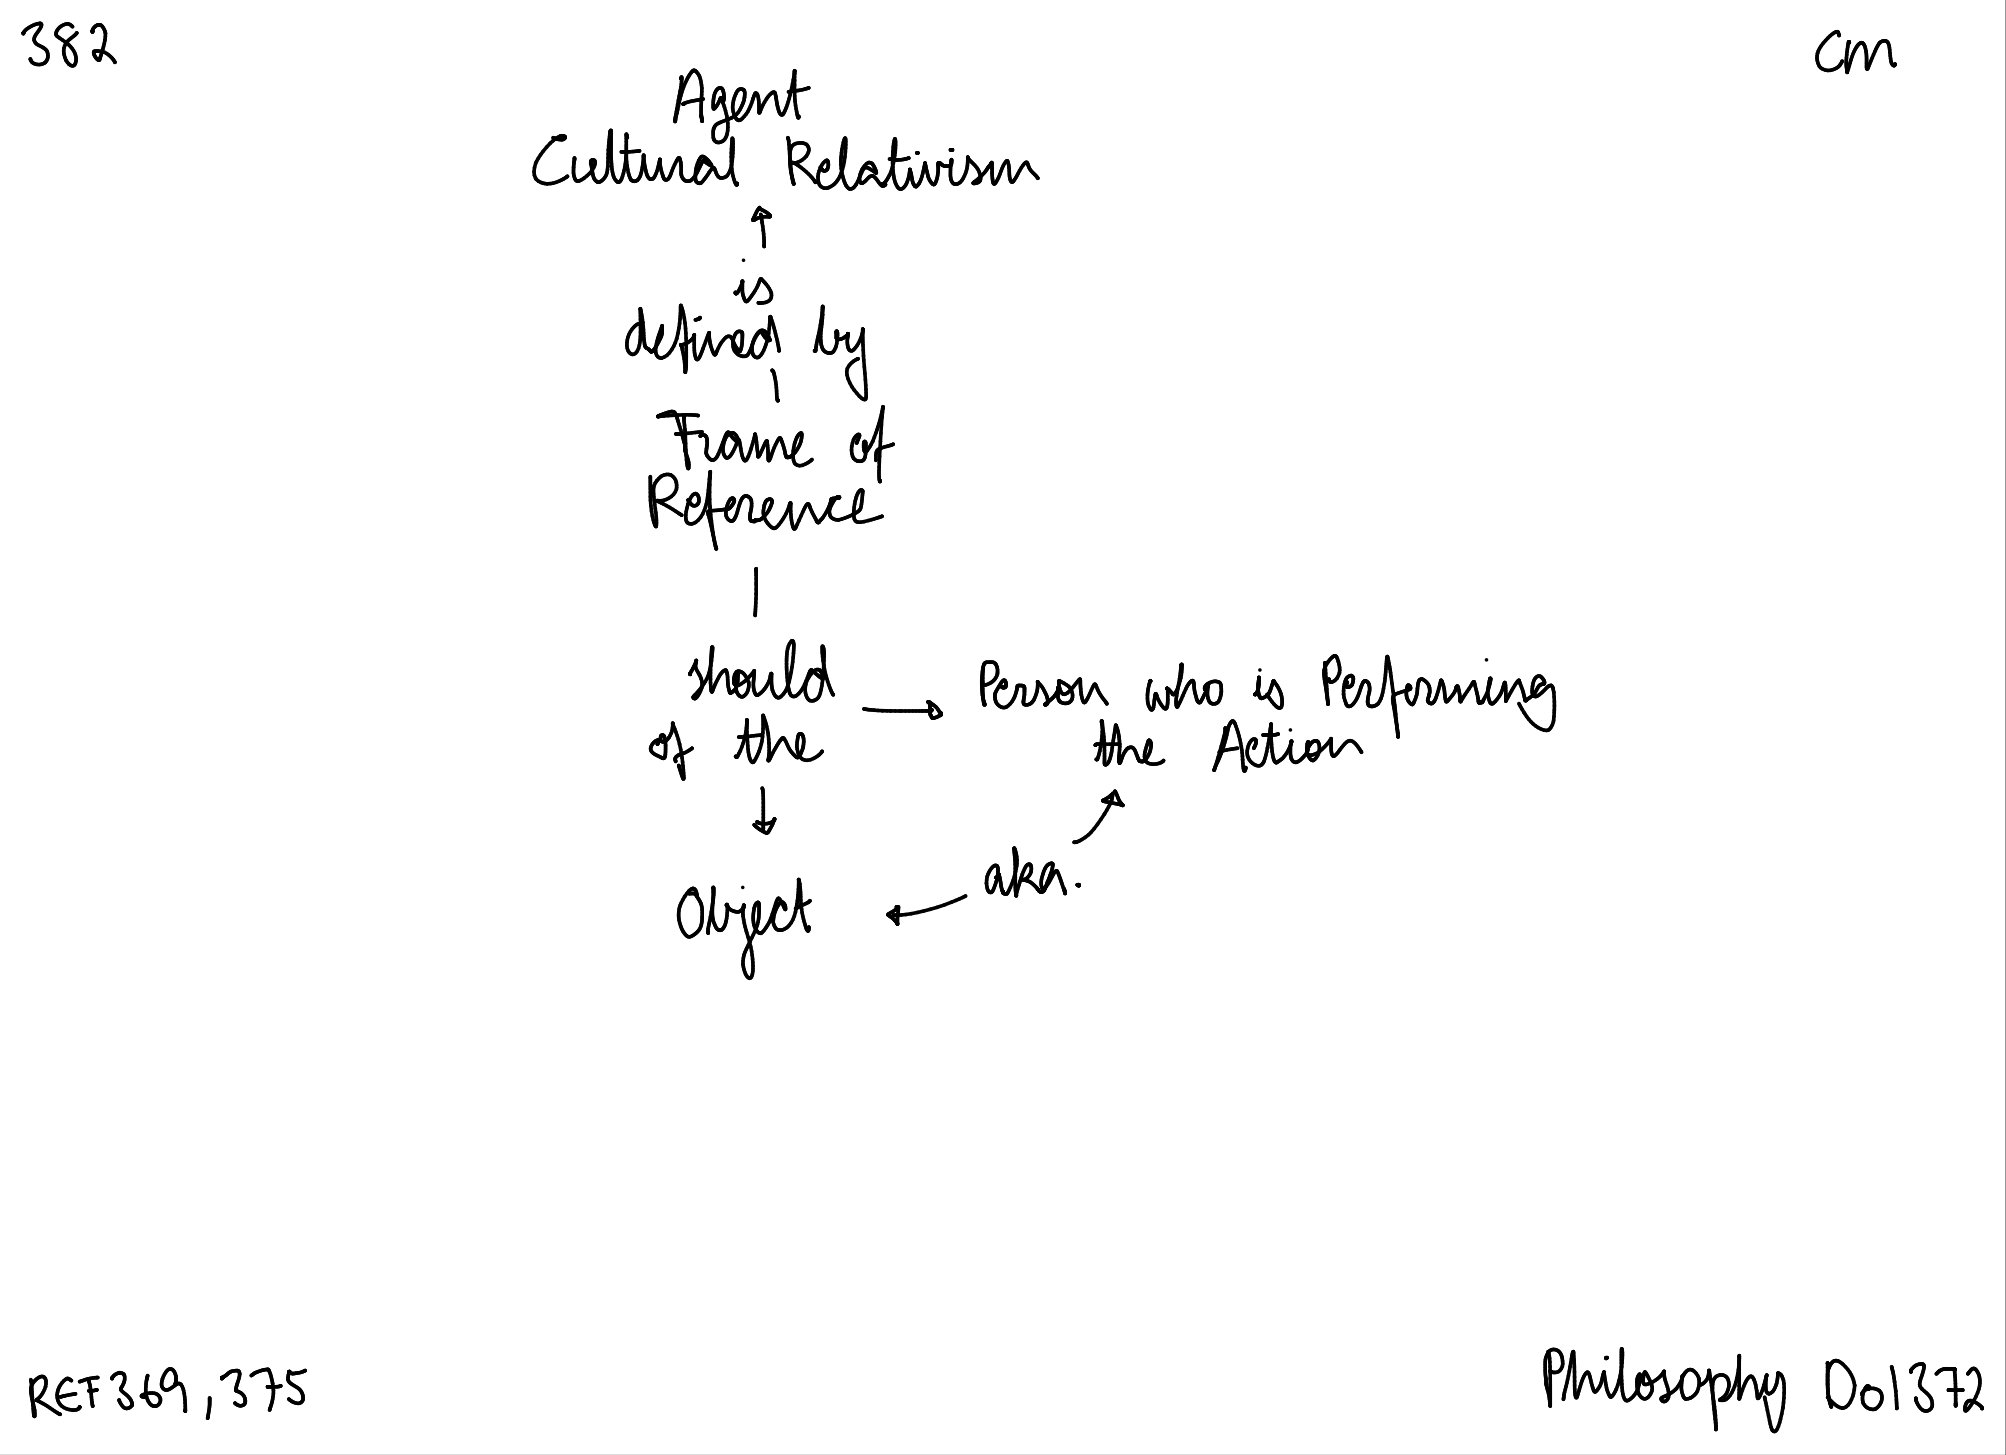 382
Cm
Agent
Cultural Relativism
is
defined by
Frame of
Reference
should
of the
Person who is Performing
the Action
aka.
Object
REF369,375
Philosophy Do1372